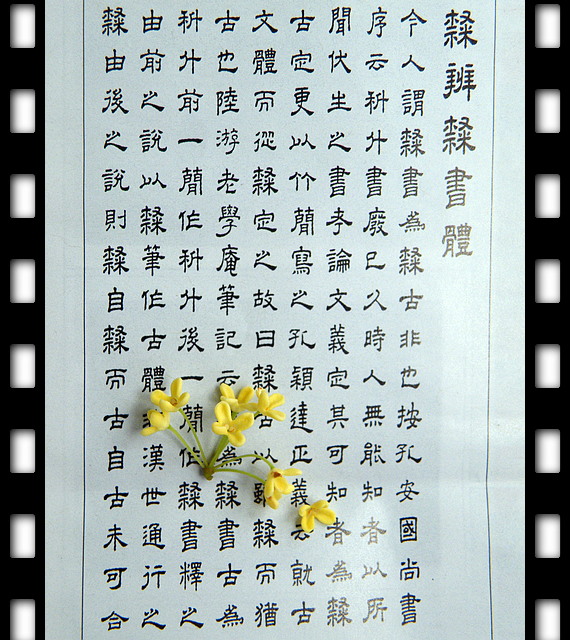 隸辨隸書體
今人謂隸書為隸古非也按孔安國尚書
序云科斗書廢已久時人無能知者以所
聞伏生之書考論文義定其可知者為隸
古定更以竹簡寫之孔穎達正義云就古
文體而從隸定之故曰隸古以雖隸而猶
古也陸游老學庵筆記云為隸書古為
科斗前一簡作科斗後一簡作隸書釋之
由前之說以隸筆作古體非漢世通行之
隸由後之說則隸自隸而古自古未可合